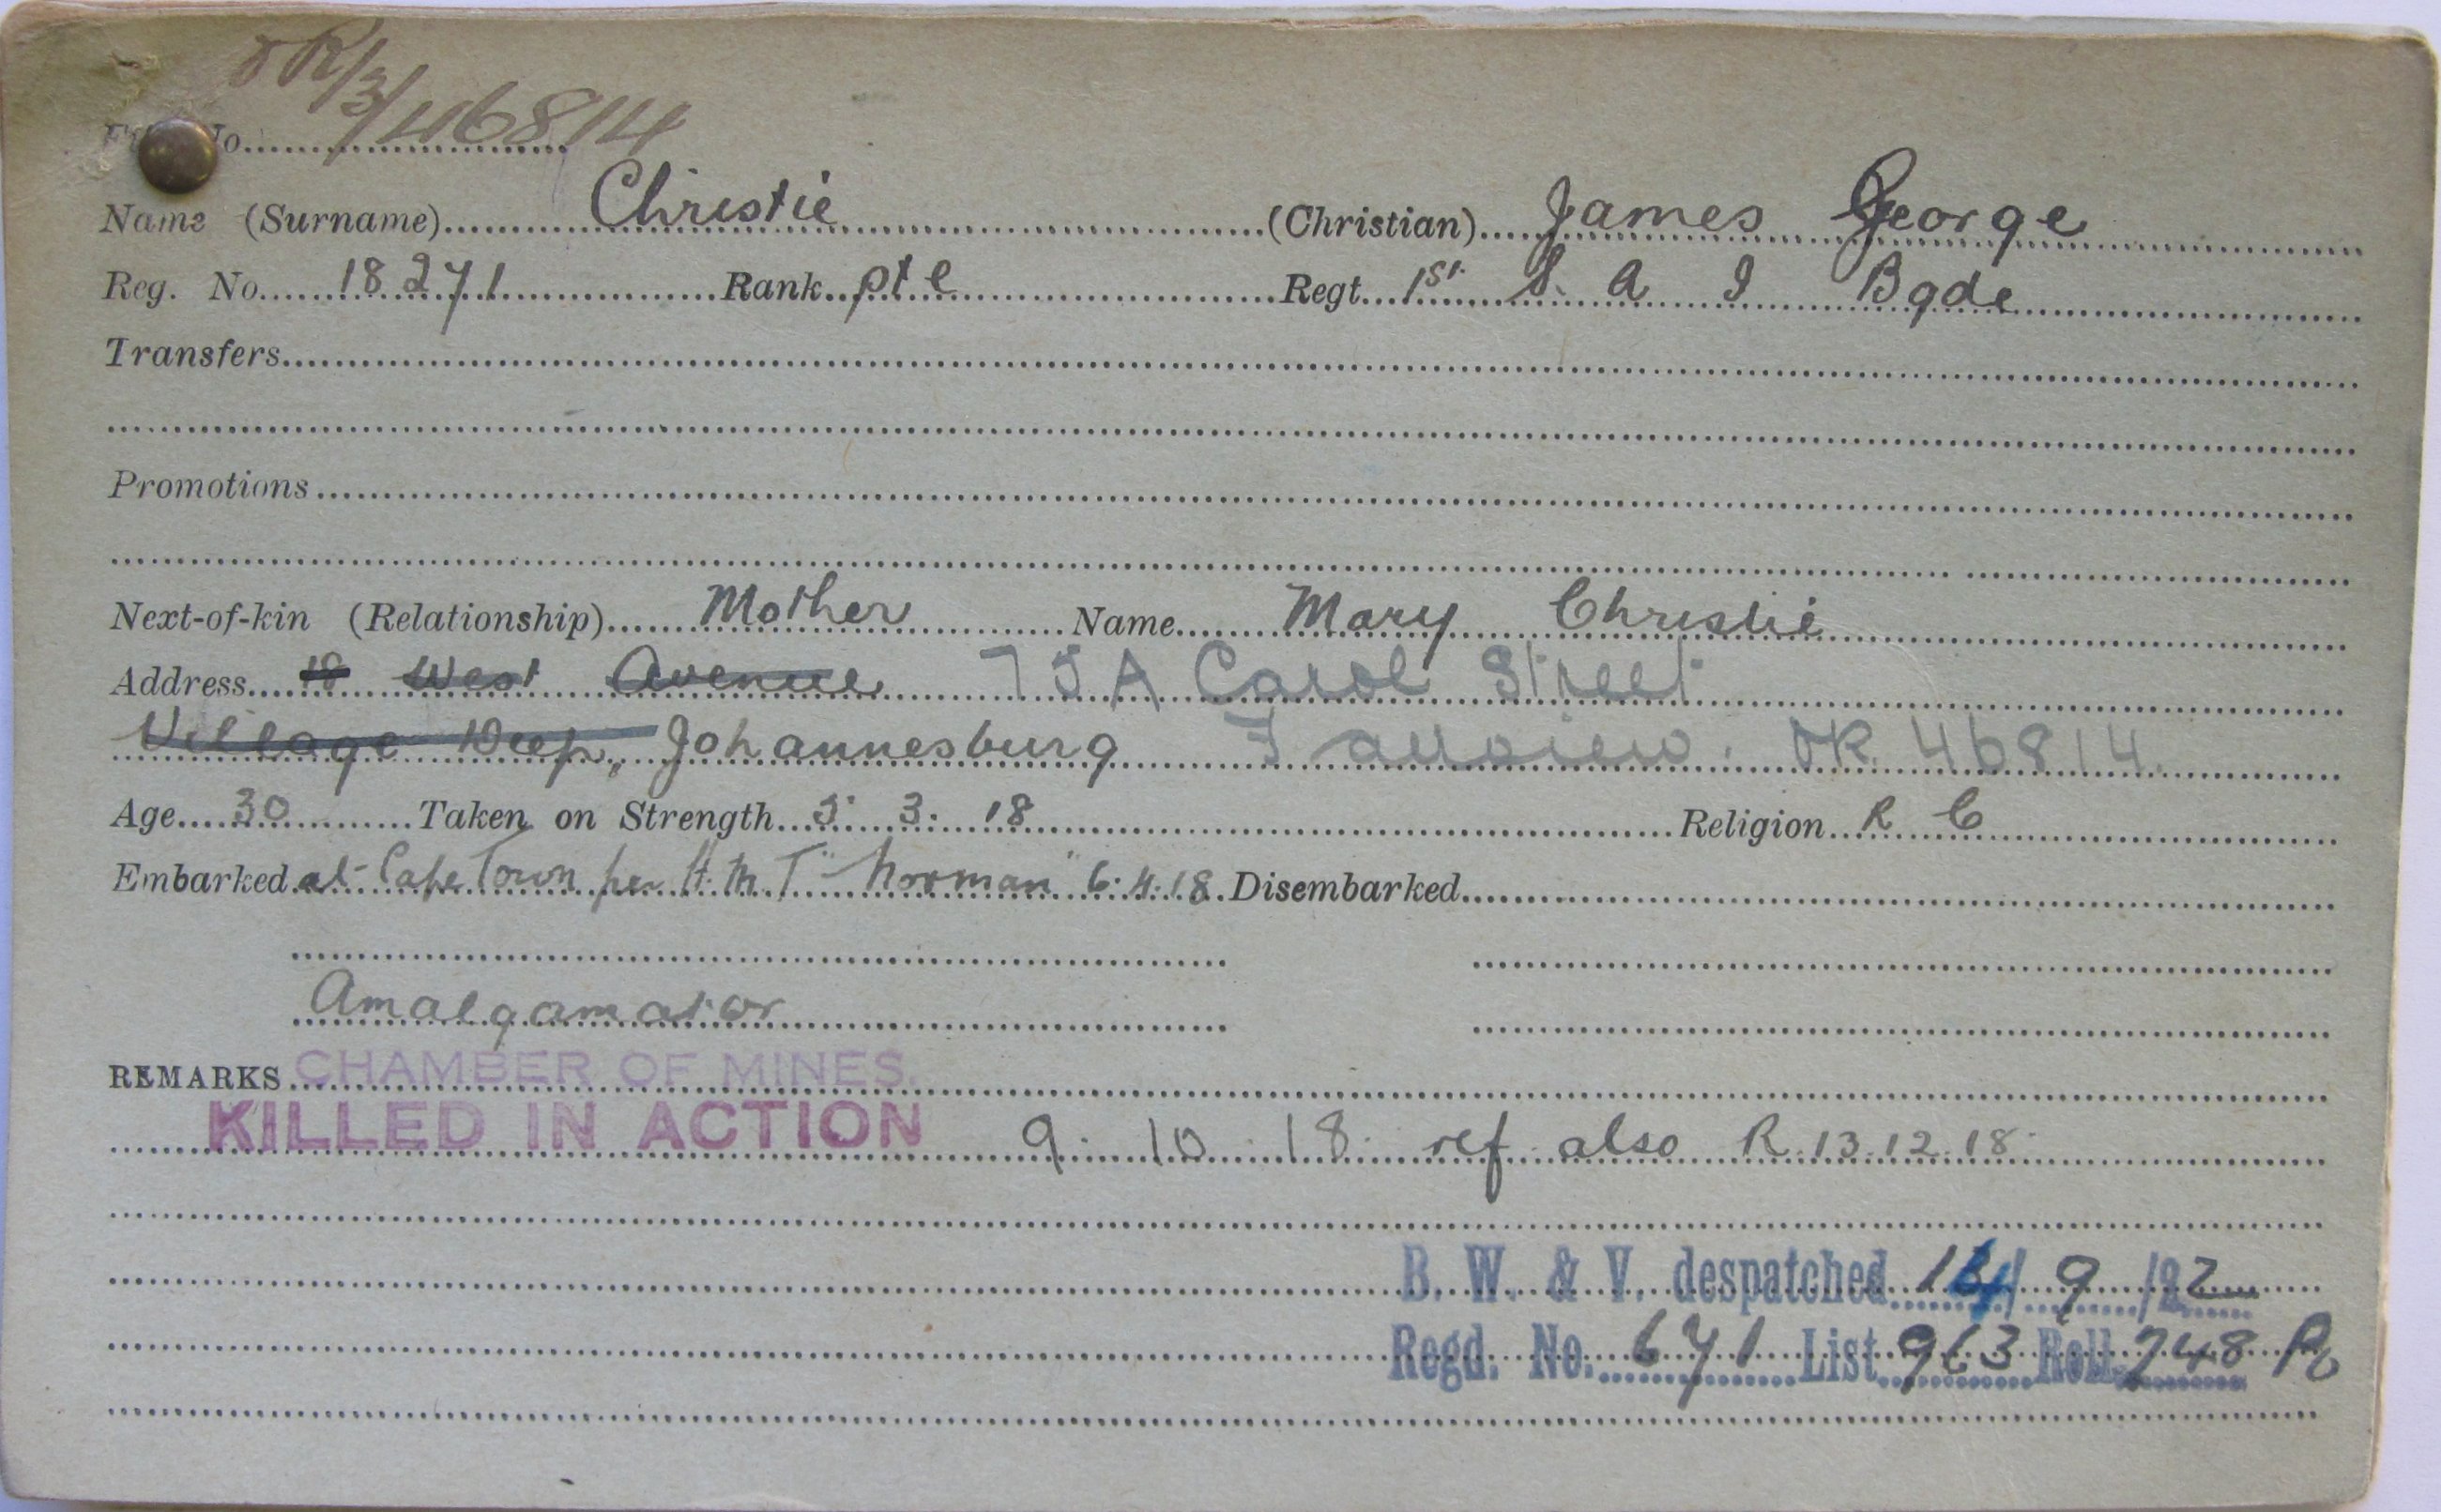 DR/3/46814
File No.
Name (Surname) Christie (Christian) James George
Reg. No. 18271 Rank pte Regt. 1st S. A I Bgde
Transfers
Promotions
Next-of-kin (Relationship) Mother Name Mary Christie
Address 18 West Avenue 75A Carol Street
Village Deep, Johannesburg DR 46814.
Age 30 Taken on Strength 5. 3. 18 Religion R C
Embarked at Cape Town per H.M.T "Norman" 6.4.18. Disembarked
Amalgamator
REMARKS CHAMBER OF MINES.
KILLED IN ACTION 9. 10. 18. ref also R. 13.12.18.
B. W. & V. despatched 14/ 9 /22
Regd. No. 671 List 963 Roll 748